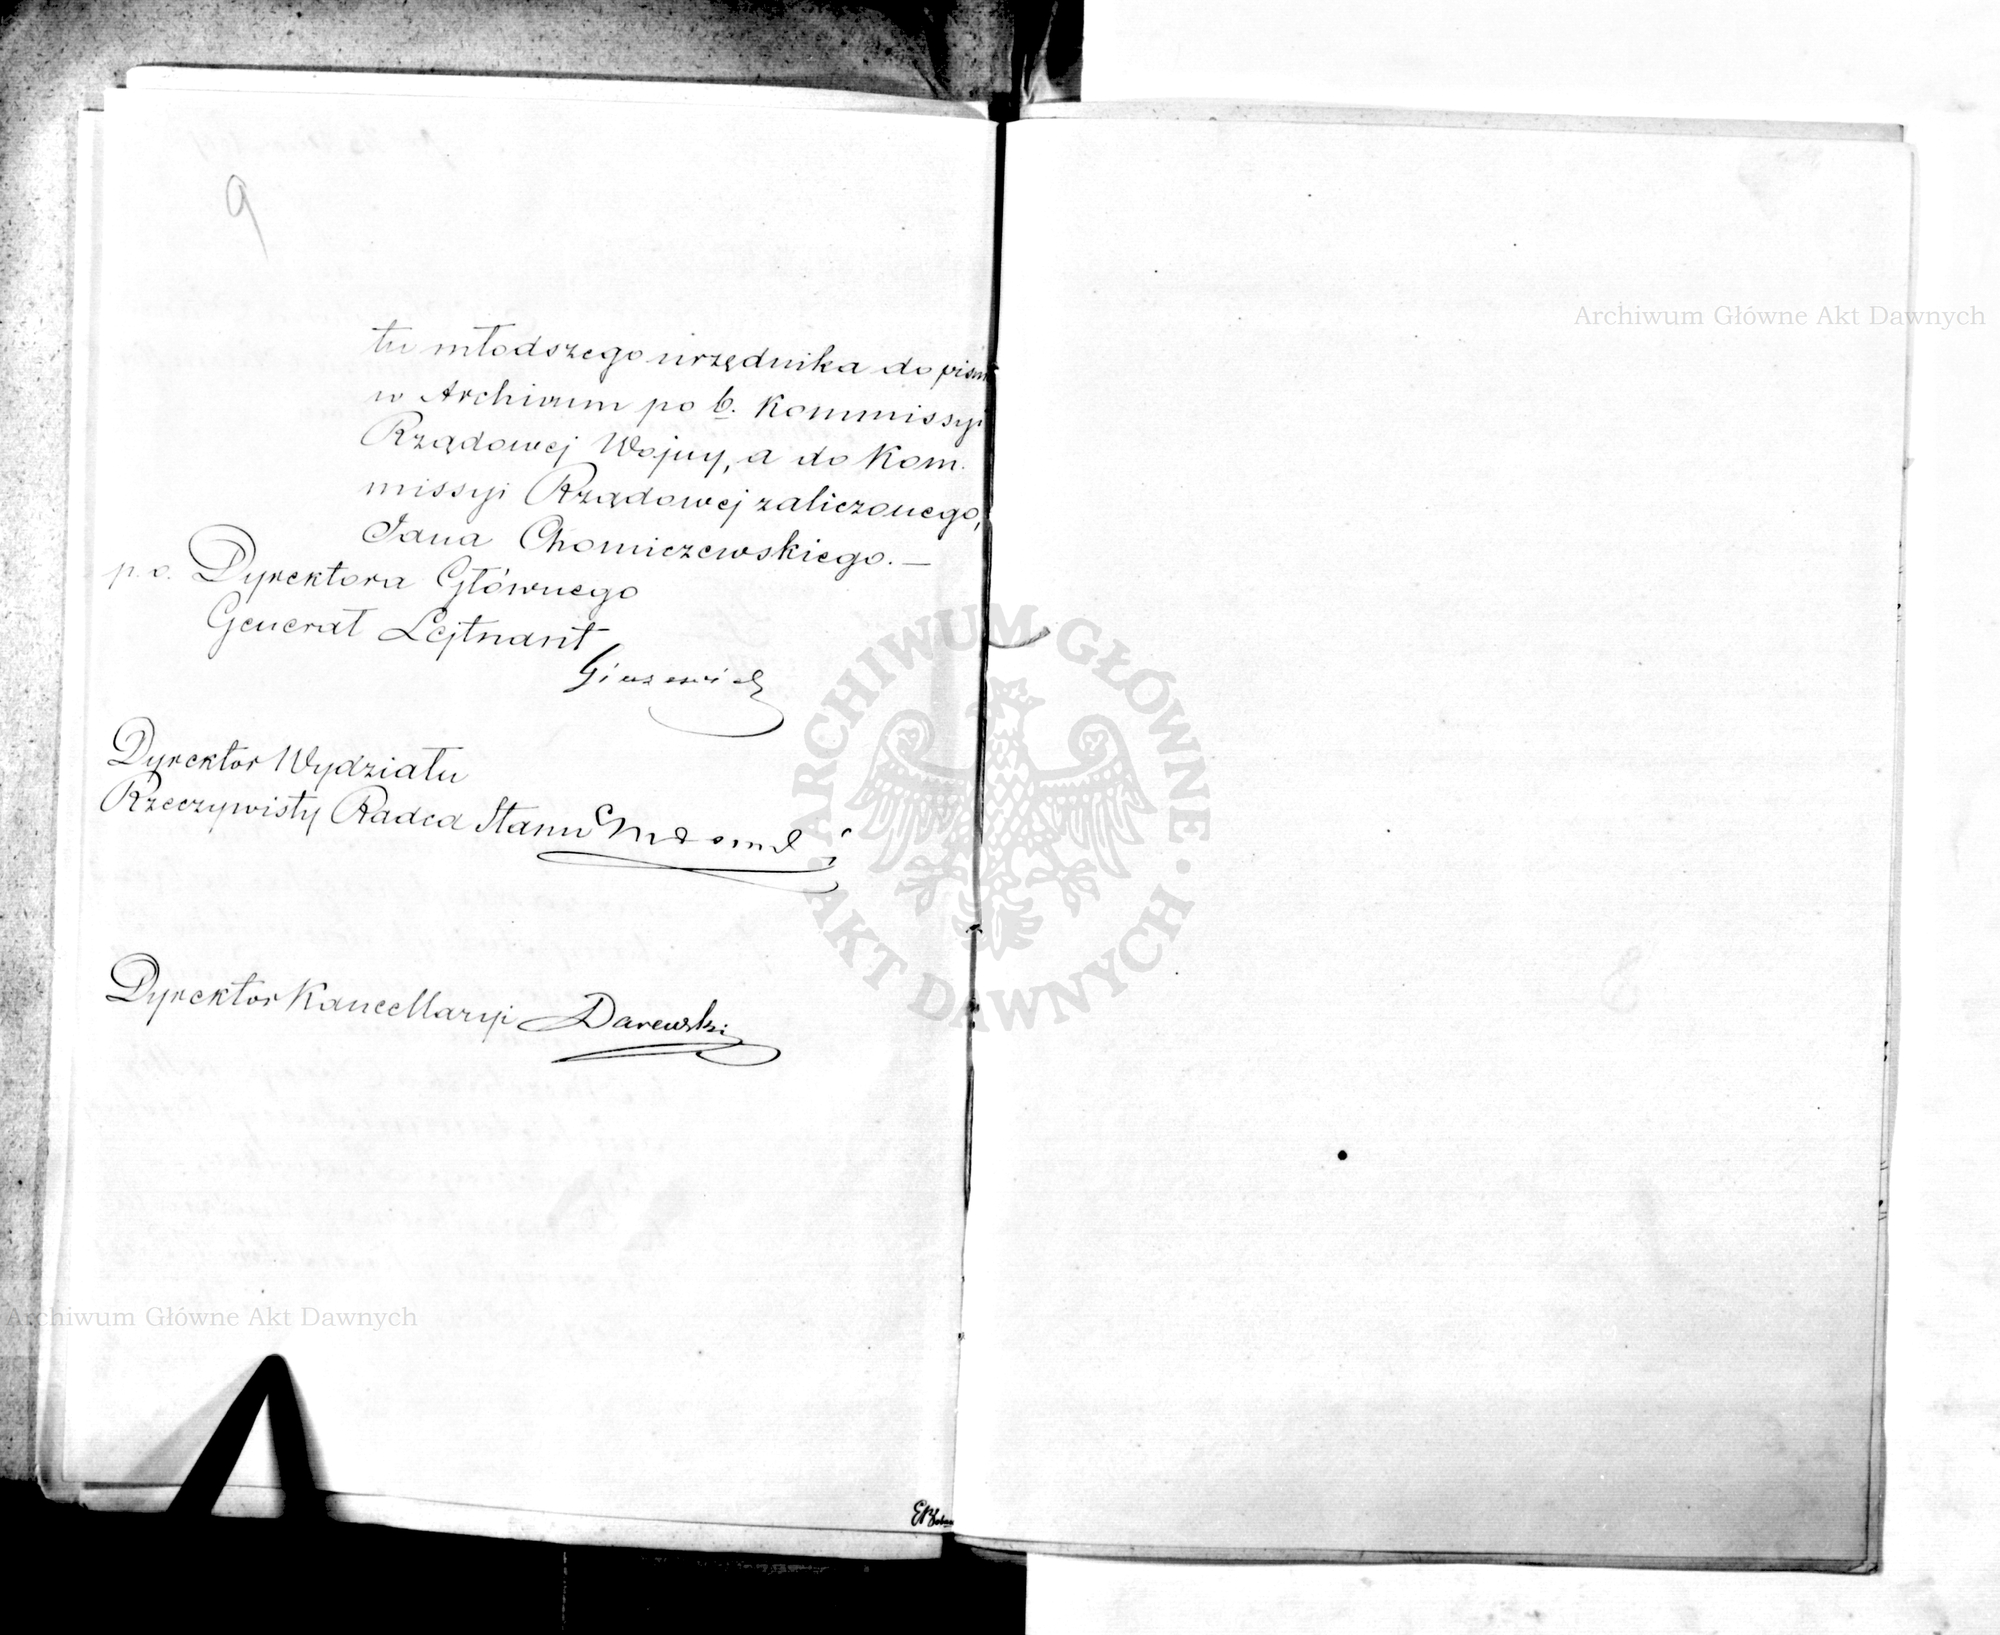 9
tu młodszego urzędnika do pism
w Archivum po b. Kommissyi
Rządowej Wojny, a do Kom-
missyi Rządowej zaliczonego,
Jana Chomiczewskiego. —
p. o. Dyrektora Głównego
Generał Lejtnant
Dyrektor Wydziału
Rzeczywisty Radca Stanu
Dyrektor Kancellaryi Darewski
Archiwum Główne Akt Dawnych
Archiwum Główne Akt Dawnych
ARCHIWUM GŁÓWNE
AKT DAWNYCH